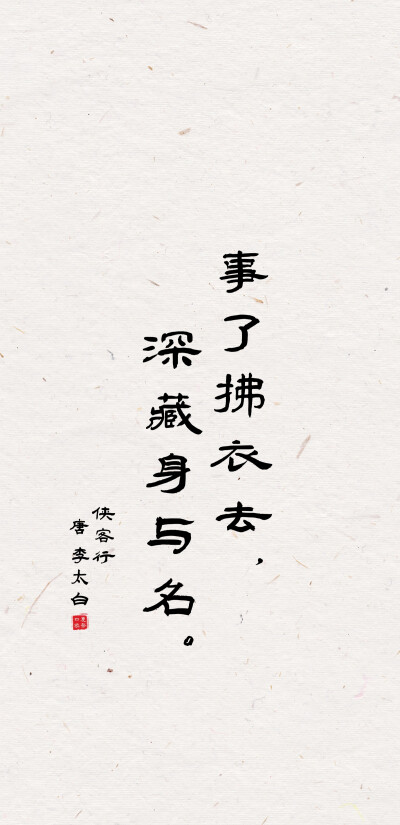 事了拂衣去，
深藏身与名。
侠客行
唐 李太白